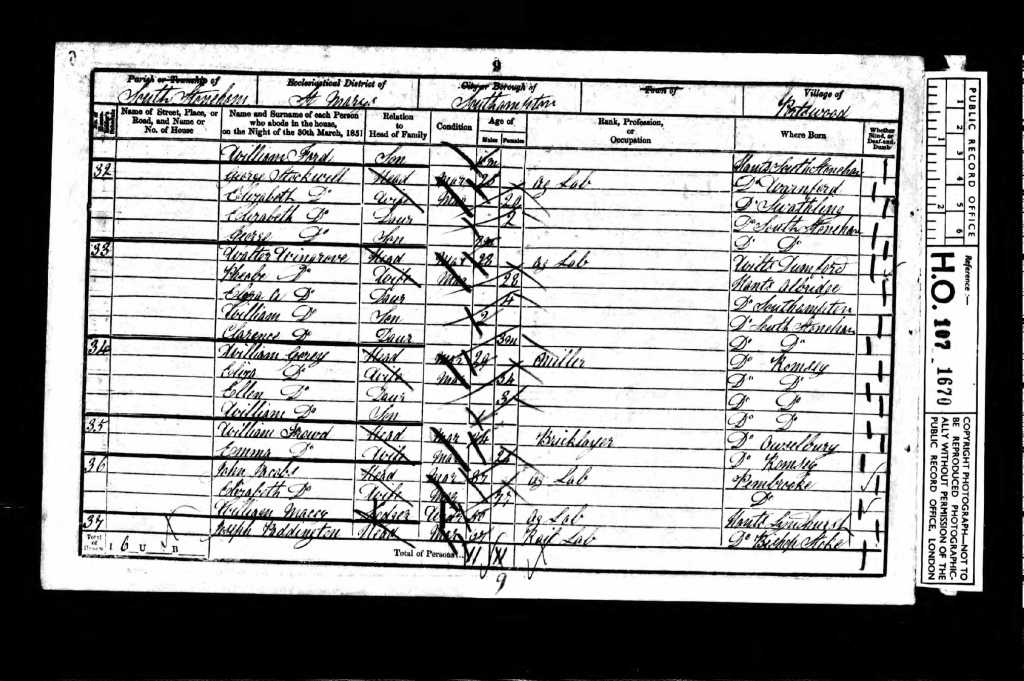 9
Parish or Township of Ecclesiastical District of City or Borough of Town of Village of
South Stoneham St Marys Southampton Portswood
Name of Street, Place, or Road, and Name or No. of House Name and Surname of each Person who abode in the house, on the Night of the 30th March, 1851 Relation to Head of Family Condition Age of Males Females Rank, Profession, or Occupation Where Born Whether Blind, or Deaf-and-Dumb
William Ford Son Hants South Stoneham
32 George Stockwell Head Mar 28 Ag Lab Do Warnford
Elizabeth Do Wife Mar Do Swathling
Elizabeth Do Daur 2 Do South Stoneham
George Do Son Do Do
33 Walter Wingrove Head Mar 28 Ag Lab Wilts Durnford
Phoebe Do Wife Mar 28 Hants
Eliza A Do Daur 4 Do Southampton
William Do Son 2 Do South Stoneham
Clarence Do Daur Do Do
34 William Gorey Head Mar 29 Miller Do Romsey
Eliza Do Wife Mar 34 Do Do
Ellen Do Daur 3 Do Do
William Do Son Do Do
35 William Head Mar Bricklayer Do Owselbury
Emma Do Wife Mar Do Romsey
36 John Head Mar Ag Lab Pembroke
Elizabeth Do Wife Mar Do
William Macey Lodger Ag Lab Hants Lyndhurst
37 Joseph Paddington Head Mar Rail Lab Do Bishop Stoke
Total of Houses 1 6 U B Total of Persons 11 11
9
PUBLIC RECORD OFFICE
1 2 3 4 5 6
1 2
Reference :-
H.O. 107 1670
COPYRIGHT PHOTOGRAPH—NOT TO BE REPRODUCED PHOTOGRAPHICALLY WITHOUT PERMISSION OF THE PUBLIC RECORD OFFICE, LONDON